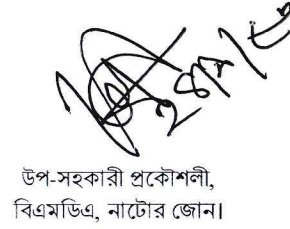 উপ-সহকারী প্রকৌশলী,
বিএমডিএ, নাটোর জোন।